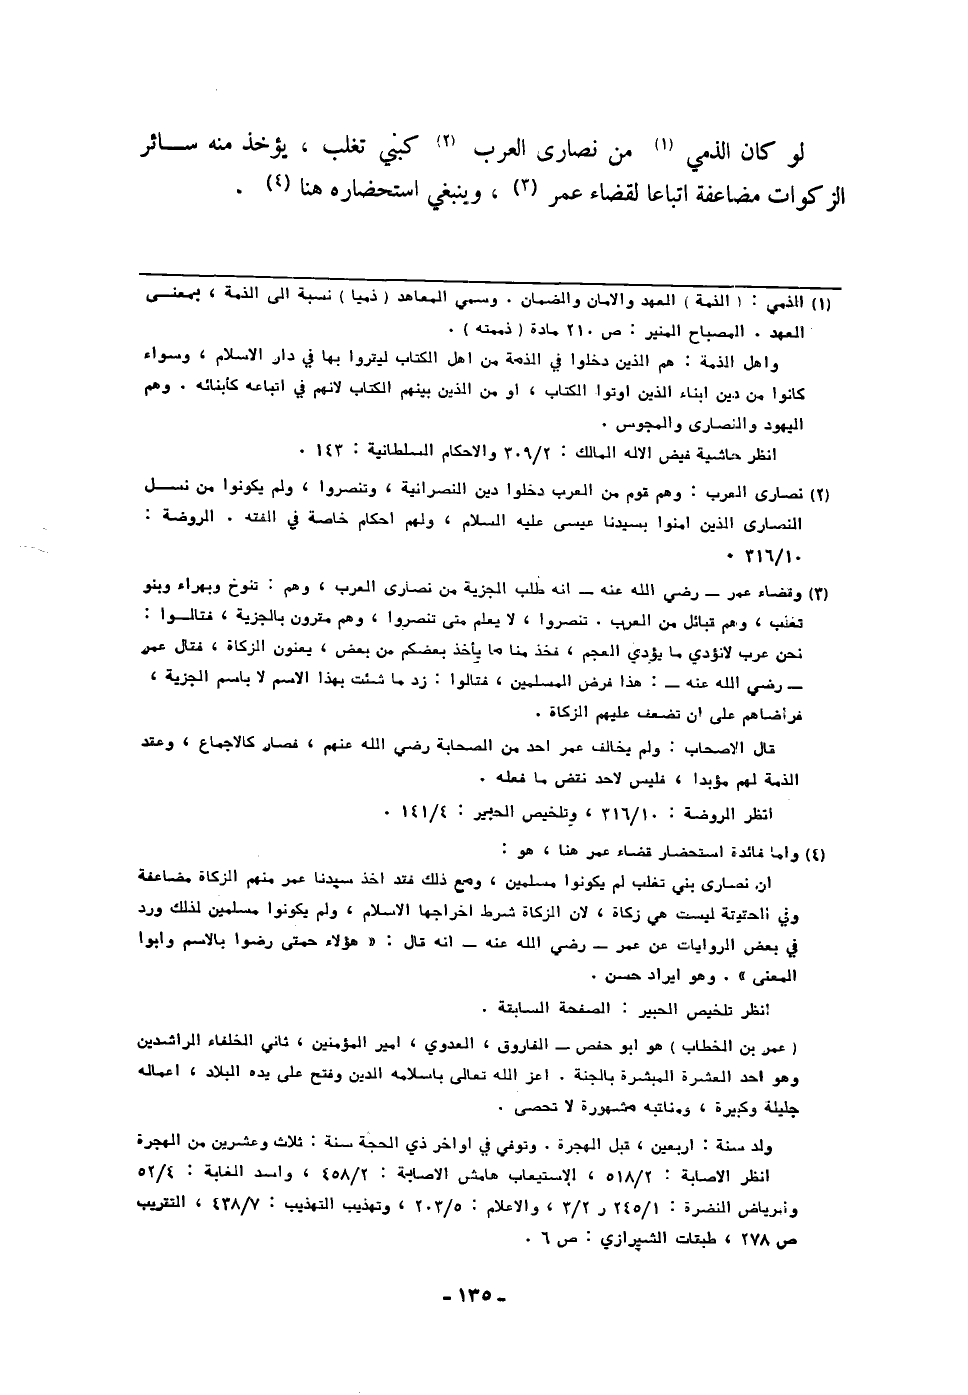 لو كان الذمي (١) من نصارى العرب (٢) كبني تغلب ، يؤخذ منه ســائر
الزكوات مضاعفة اتباعا لقضاء عمر (٣) ، وينبغي استحضاره هنا (٤) .
(١) الذمي : ( الذمة ) العهد والامان والضمان . وسمي المعاهد ( ذميا ) نسبة الى الذمة ، بمعنــى
العهد . المصباح المنير : ص ٢١٠ مادة ( ذممته ) .
واهل الذمة : هم الذين دخلوا في الذمة من اهل الكتاب ليقروا بها في دار الاسلام ، وسواء
كانوا من دين ابناء الذين اوتوا الكتاب ، او من الذين بينهم الكتاب لانهم في اتباعه كأبنائه . وهم
اليهود والنصارى والمجوس .
انظر حاشية فيض الاله المالك : ٣٠٩/٢ والاحكام السلطانية : ١٤٣ .
(٢) نصارى العرب : وهم قوم من العرب دخلوا دين النصرانية ، وتنصروا ، ولم يكونوا من نســل
النصارى الذين امنوا بسيدنا عيسى عليه السلام ، ولهم احكام خاصة في الفقه . الروضة :
٣١٦/١٠ .
(٣) وقضاء عمر ــ رضي الله عنه ــ انه طلب الجزية من نصارى العرب ، وهم : تنوخ وبهراء وبنو
تغلب ، وهم قبائل من العرب . تنصروا ، لا يعلم متى تنصروا ، وهم مقرون بالجزية ، فقالــوا :
نحن عرب لانؤدي ما يؤدي العجم ، فخذ منا ما يأخذ بعضكم من بعض ، يعنون الزكاة ، فقال عمر
ــ رضي الله عنه ــ : هذا فرض المسلمين ، فقالوا : زد ما شئت بهذا الاسم لا باسم الجزية ،
فراضاهم على ان تضعف عليهم الزكاة .
قال الاصحاب : ولم يخالف عمر احد من الصحابة رضي الله عنهم ، فصار كالاجماع ، وعقد
الذمة لهم مؤبدا ، فليس لاحد نقض ما فعله .
انظر الروضة : ٣١٦/١٠ ، وتلخيص الحبير : ١٤١/٤ .
(٤) واما فائدة استحضار قضاء عمر هنا ، هو :
ان نصارى بني تغلب لم يكونوا مسلمين ، ومع ذلك فقد اخذ سيدنا عمر منهم الزكاة مضاعفة
وفي الحقيقة ليست هي زكاة ، لان الزكاة شرط اخراجها الاسلام ، ولم يكونوا مسلمين لذلك ورد
في بعض الروايات عن عمر ــ رضي الله عنه ــ انه قال : « هؤلاء حمقى رضوا بالاسم وابوا
المعنى » . وهو ايراد حسن .
انظر تلخيص الحبير : الصفحة السابقة .
( عمر بن الخطاب ) هو ابو حفص ــ الفاروق ، العدوي ، امير المؤمنين ، ثاني الخلفاء الراشدين
وهو احد العشرة المبشرة بالجنة . اعز الله تعالى باسلامه الدين وفتح على يده البلاد ، اعماله
جليلة وكبيرة ، ومناقبه مشهورة لا تحصى .
ولد سنة : اربعين ، قبل الهجرة . وتوفي في اواخر ذي الحجة سنة : ثلاث وعشرين من الهجرة
انظر الاصابة : ٥١٨/٢ ، الاستيعاب هامش الاصابة : ٤٥٨/٢ ، واسد الغابة : ٥٢/٤
والرياض النضرة : ٢٤٥/١ ر ٣/٢ ، والاعلام : ٢٠٣/٥ ، وتهذيب التهذيب : ٤٣٨/٧ ، التقريب
ص ٢٧٨ ، طبقات الشيرازي : ص ٦ .
ـ ١٣٥ ـ